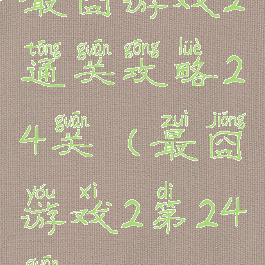 最囧游戏2
tōng guān gōng lüè
通关攻略2
guān zuì jiǒng
4关(最囧
yóu xì dì
游戏2第24
guān